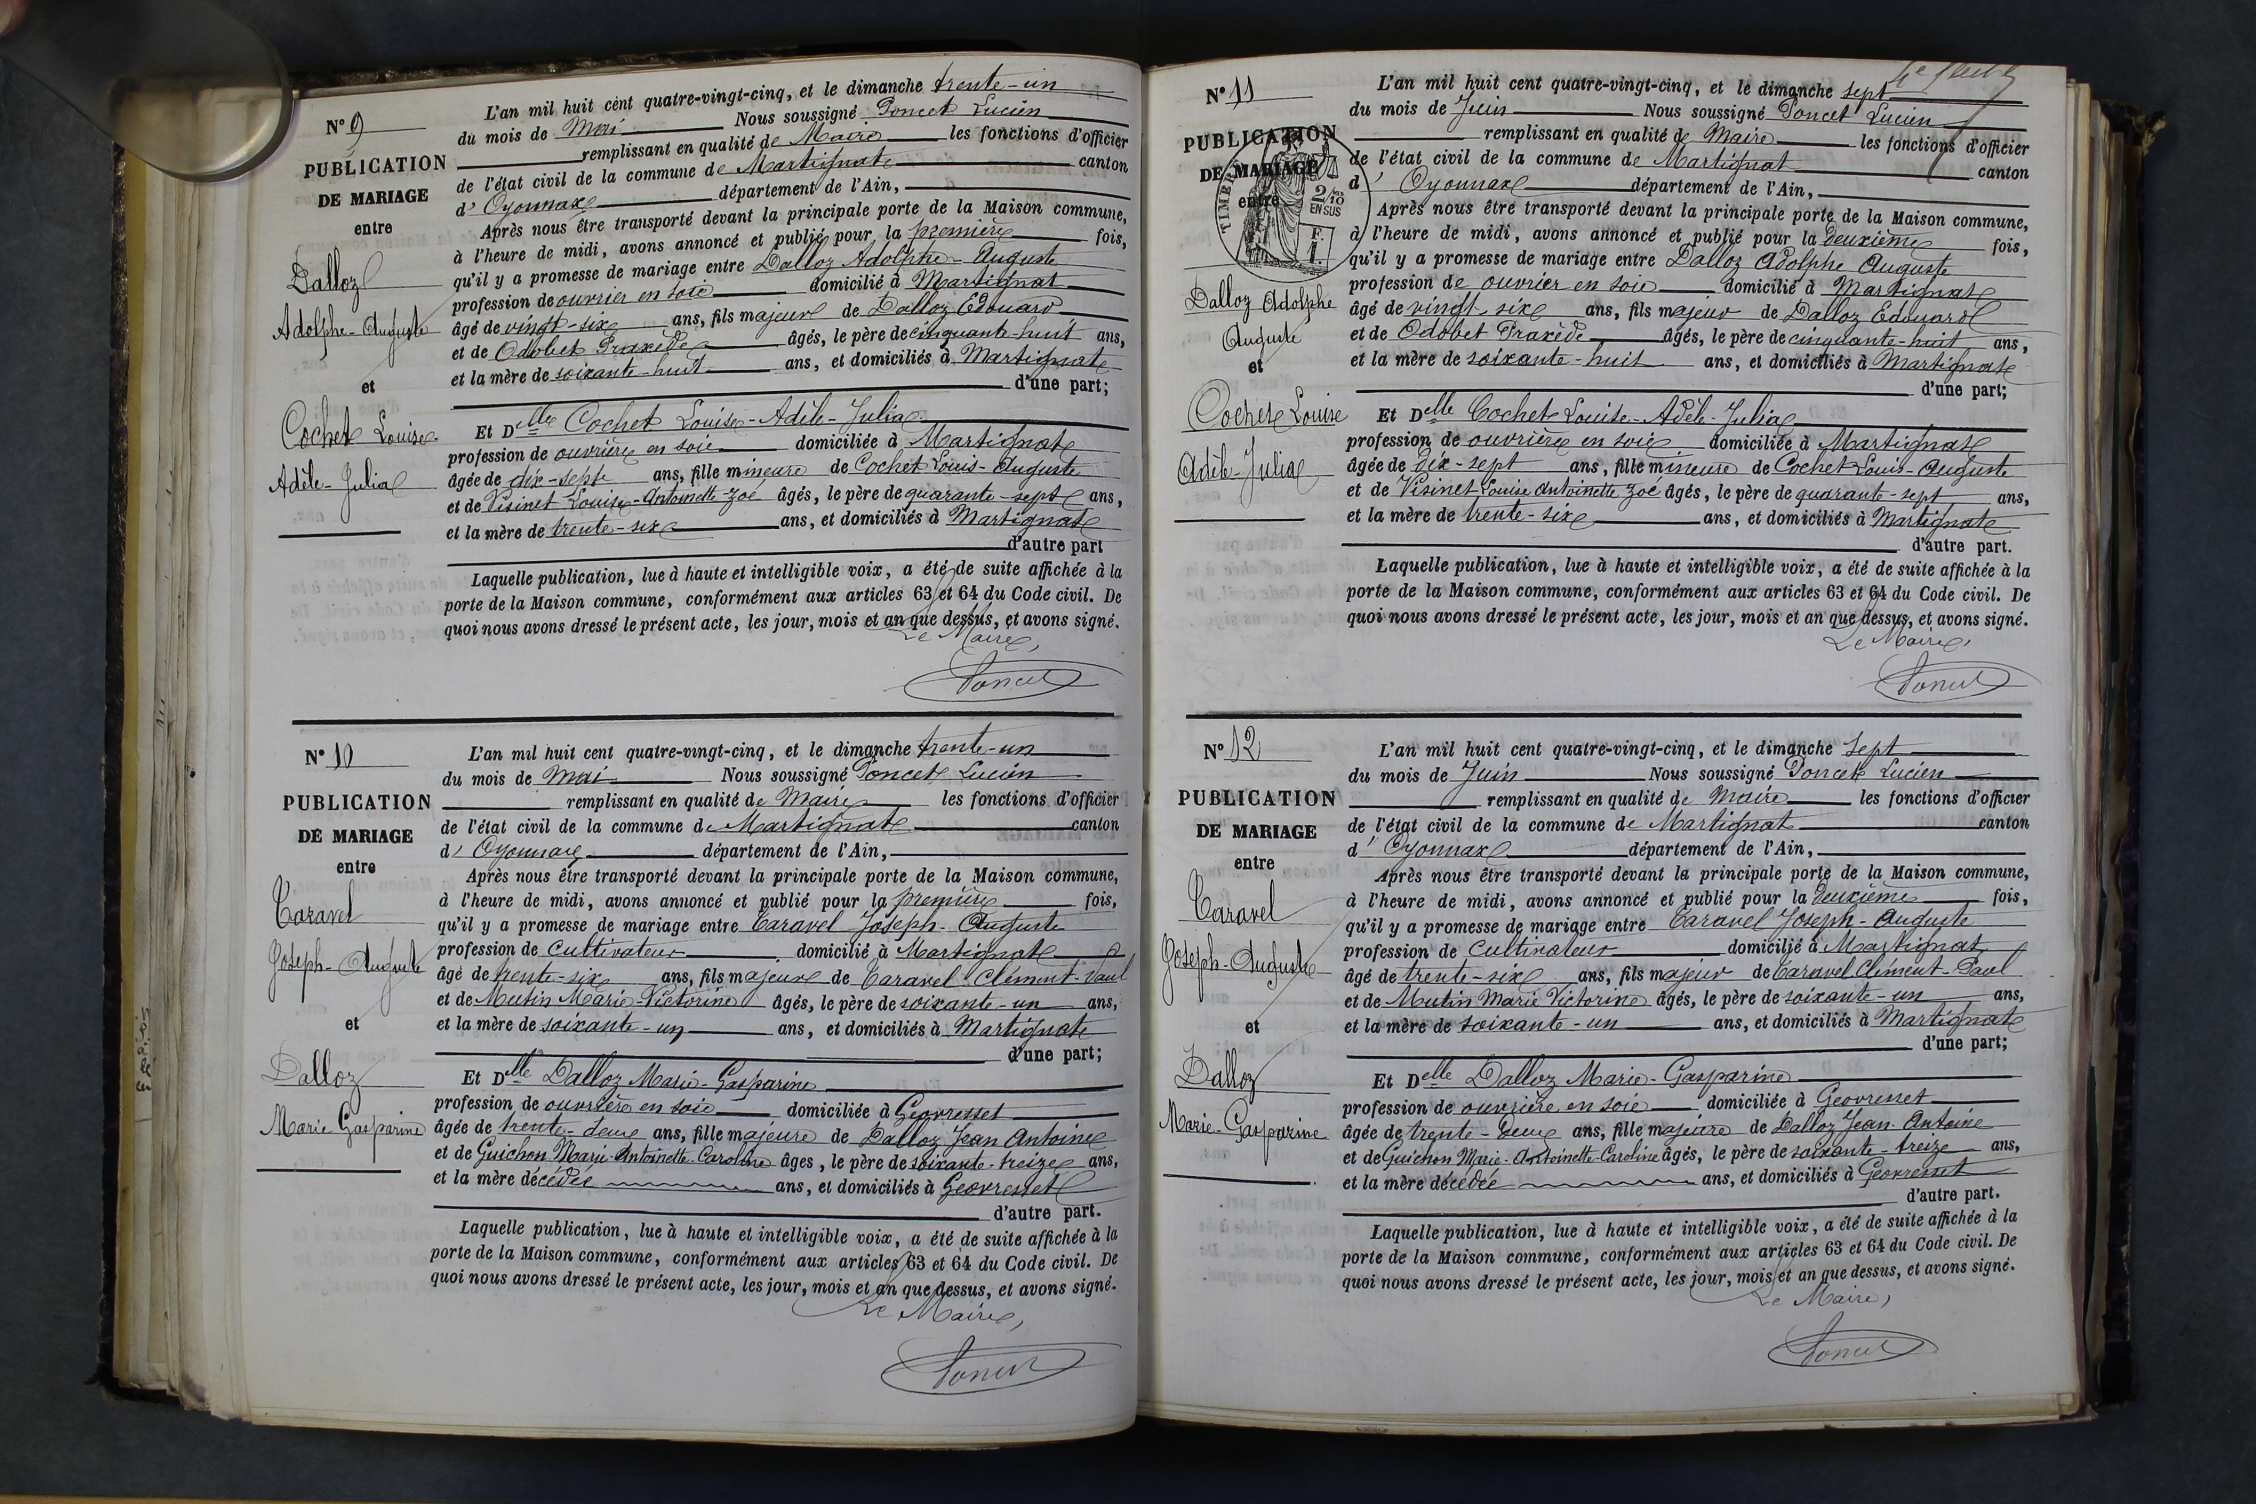 N° 9
PUBLICATION
DE MARIAGE
entre
Dalloz
Adolphe-Auguste
et
Cochet Louise
Adèle-Julia
L'an mil huit cent quatre-vingt-cinq, et le dimanche trente-un
du mois de Mai Nous soussigné Poncet Lucien
remplissant en qualité de Maire les fonctions d'officier
de l'état civil de la commune de Martignat canton
d' Oyonnax département de l'Ain,
Après nous être transporté devant la principale porte de la Maison commune,
à l'heure de midi, avons annoncé et publié pour la première fois,
qu'il y a promesse de mariage entre Dalloz Adolphe-Auguste
profession de ouvrier en soie domicilié à Martignat
âgé de vingt-six ans, fils majeur de Dalloz Edouard
et de Odobet Praxède âgés, le père de cinquante-huit ans,
et la mère de soixante-huit ans, et domiciliés à Martignat
d'une part;
Et Delle Cochet Louise-Adèle-Julia
profession de ouvrière en soie domiciliée à Martignat
âgée de dix-sept ans, fille mineure de Cochet Louis-Auguste
et de Visinet Louise-Antoinette-Zoé âgés, le père de quarante-sept ans,
et la mère de trente-six ans, et domiciliés à Martignat
d'autre part
Laquelle publication, lue à haute et intelligible voix, a été de suite affichée à la
porte de la Maison commune, conformément aux articles 63 et 64 du Code civil. De
quoi nous avons dressé le présent acte, les jour, mois et an que dessus, et avons signé.
Le Maire,
Poncet
N° 10
PUBLICATION
DE MARIAGE
entre
Caravel
Joseph-Auguste
et
Dalloz
Marie-Gasparine
L'an mil huit cent quatre-vingt-cinq, et le dimanche trente-un
du mois de Mai Nous soussigné Poncet Lucien
remplissant en qualité de Maire les fonctions d'officier
de l'état civil de la commune de Martignat canton
d' Oyonnax département de l'Ain,
Après nous être transporté devant la principale porte de la Maison commune,
à l'heure de midi, avons annoncé et publié pour la première fois,
qu'il y a promesse de mariage entre Caravel Joseph-Auguste
profession de Cultivateur domicilié à Martignat
âgé de trente-six ans, fils majeur de Caravel Clément-Paul
et de Mutin Marie-Victorine âgés, le père de soixante-un ans,
et la mère de soixante-un ans, et domiciliés à Martignat
d'une part;
Et Delle Dalloz Marie-Gasparine
profession de ouvrière en soie domiciliée à Géovresset
âgée de trente-deux ans, fille majeure de Dalloz Jean Antoine
et de Guichon Marie-Antoinette-Caroline âgés, le père de soixante-treize ans,
et la mère décédée ans, et domiciliés à Géovresset
d'autre part.
Laquelle publication, lue à haute et intelligible voix, a été de suite affichée à la
porte de la Maison commune, conformément aux articles 63 et 64 du Code civil. De
quoi nous avons dressé le présent acte, les jour, mois et an que dessus, et avons signé.
Le Maire,
Poncet
N° 11
PUBLICATION
DE MARIAGE
entre
TIMBRE
2/10
EN SUS
F.
1.
Dalloz Adolphe
Auguste
et
Cochet Louise
Adèle-Julia
L'an mil huit cent quatre-vingt-cinq, et le dimanche sept
du mois de Juin Nous soussigné Poncet Lucien
remplissant en qualité de Maire les fonctions d'officier
de l'état civil de la commune de Martignat canton
d' Oyonnax département de l'Ain,
Après nous être transporté devant la principale porte de la Maison commune,
à l'heure de midi, avons annoncé et publié pour la deuxième fois,
qu'il y a promesse de mariage entre Dalloz Adolphe Auguste
profession de ouvrier en soie domicilié à Martignat
âgé de vingt-six ans, fils majeur de Dalloz Edouard
et de Odobet Praxède âgés, le père de cinquante-huit ans,
et la mère de soixante-huit ans, et domiciliés à Martignat
d'une part;
Et Delle Cochet Louise-Adèle-Julia
profession de ouvrière en soie domiciliée à Martignat
âgée de dix-sept ans, fille mineure de Cochet Louis-Auguste
et de Visinet Louise Antoinette Zoé âgés, le père de quarante-sept ans,
et la mère de trente-six ans, et domiciliés à Martignat
d'autre part.
Laquelle publication, lue à haute et intelligible voix, a été de suite affichée à la
porte de la Maison commune, conformément aux articles 63 et 64 du Code civil. De
quoi nous avons dressé le présent acte, les jour, mois et an que dessus, et avons signé.
Le Maire,
Poncet
N° 12
PUBLICATION
DE MARIAGE
entre
Caravel
Joseph-Auguste
et
Dalloz
Marie-Gasparine
L'an mil huit cent quatre-vingt-cinq, et le dimanche sept
du mois de Juin Nous soussigné Poncet Lucien
remplissant en qualité de Maire les fonctions d'officier
de l'état civil de la commune de Martignat canton
d' Oyonnax département de l'Ain,
Après nous être transporté devant la principale porte de la Maison commune,
à l'heure de midi, avons annoncé et publié pour la deuxième fois,
qu'il y a promesse de mariage entre Caravel Joseph-Auguste
profession de Cultivateur domicilié à Martignat
âgé de trente-six ans, fils majeur de Caravel Clément-Paul
et de Mutin Marie Victorine âgés, le père de soixante-un ans,
et la mère de soixante-un ans, et domiciliés à Martignat
d'une part;
Et Delle Dalloz Marie-Gasparine
profession de ouvrière en soie domiciliée à Géovresset
âgée de trente-deux ans, fille majeure de Dalloz Jean-Antoine
et de Guichon Marie-Antoinette-Caroline âgés, le père de soixante-treize ans,
et la mère décédée ans, et domiciliés à Géovresset
d'autre part.
Laquelle publication, lue à haute et intelligible voix, a été de suite affichée à la
porte de la Maison commune, conformément aux articles 63 et 64 du Code civil. De
quoi nous avons dressé le présent acte, les jour, mois et an que dessus, et avons signé.
Le Maire,
Poncet